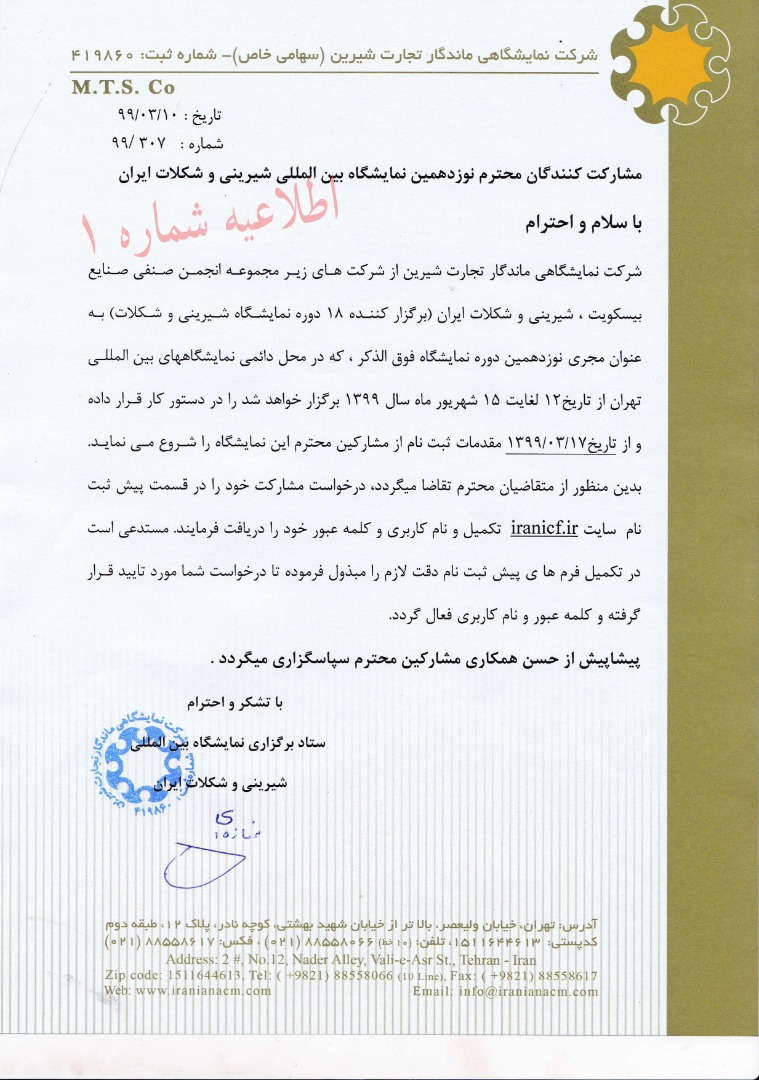 شرکت نمایشگاهی ماندگار تجارت شیرین (سهامی خاص)– شماره ثبت: ۴۱۹۸۶۰
M.T.S. Co
تاریخ : ۹۹/۰۳/۱۰
شماره : ۹۹/ ۳۰۷
مشارکت کنندگان محترم نوزدهمین نمایشگاه بین المللی شیرینی و شکلات ایران
اطلاعیه شماره ۱
با سلام و احترام
شرکت نمایشگاهی ماندگار تجارت شیرین از شرکت های زیر مجموعه انجمن صنفی صنایع
بیسکویت ، شیرینی و شکلات ایران (برگزار کننده ۱۸ دوره نمایشگاه شیرینی و شکلات) به
عنوان مجری نوزدهمین دوره نمایشگاه فوق الذکر ، که در محل دائمی نمایشگاههای بین المللی
تهران از تاریخ۱۲ لغایت ۱۵ شهریور ماه سال ۱۳۹۹ برگزار خواهد شد را در دستور کار قرار داده
و از تاریخ۱۳۹۹/۰۳/۱۷ مقدمات ثبت نام از مشارکین محترم این نمایشگاه را شروع می نماید.
بدین منظور از متقاضیان محترم تقاضا میگردد، درخواست مشارکت خود را در قسمت پیش ثبت
نام سایت iranicf.ir تکمیل و نام کاربری و کلمه عبور خود را دریافت فرمایند. مستدعی است
در تکمیل فرم ها ی پیش ثبت نام دقت لازم را مبذول فرموده تا درخواست شما مورد تایید قرار
گرفته و کلمه عبور و نام کاربری فعال گردد.
پیشاپیش از حسن همکاری مشارکین محترم سپاسگزاری میگردد .
با تشکر و احترام
ستاد برگزاری نمایشگاه بین المللی
شیرینی و شکلات ایران
شرکت نمایشگاهی ماندگار تجارت شیرین
شماره ثبت: ۴۱۹۸۶۰
آدرس: تهران، خیابان ولیعصر، بالا تر از خیابان شهید بهشتی، کوچه نادر، پلاک ۱۲، طبقه دوم
کدپستی: ۱۵۱۱۶۴۴۶۱۳، تلفن: (۱۰ خط) ۸۸۵۵۸۰۶۶ (۰۲۱) ، فکس: ۸۸۵۵۸۶۱۷ (۰۲۱)
Address: 2 #, No.12, Nader Alley, Vali-e-Asr St., Tehran - Iran
Zip code: 1511644613, Tel: ( +9821) 88558066 (10 Line), Fax: ( +9821) 88558617
Web: www.iranianacm.com Email: info@iranianacm.com